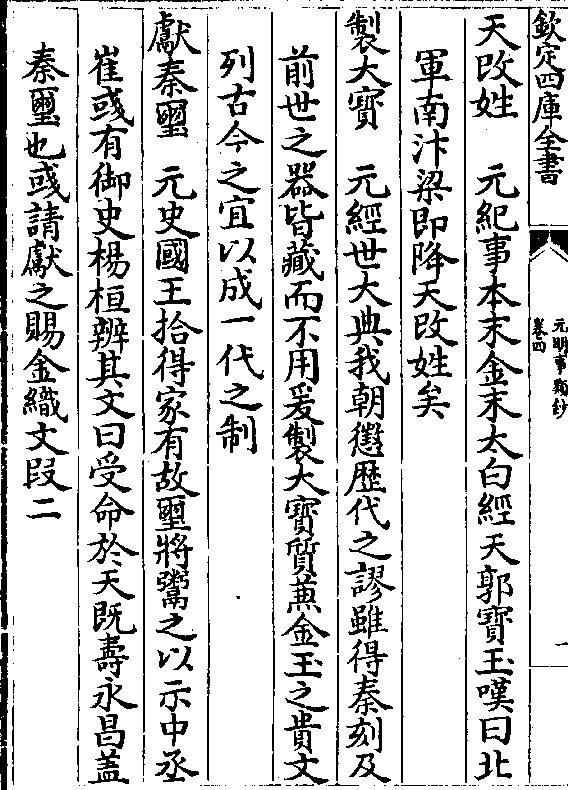 欽定四庫全書
元明事類鈔
卷四
一
天改姓　元紀事本末金末太白經天郭寶玉嘆曰北
軍南汴梁即降天改姓矣
製大寶　元經世大典我朝懲歴代之謬雖得秦刻及
前世之器皆藏而不用爰製大寶質蒹金玉之貴文
列古今之宜以成一代之制
獻秦璽　元史國王拾得家有故璽將鬻之以示中丞
崔彧有御史楊桓辨其文曰受命於天既壽永昌蓋
秦璽也彧請獻之賜金織文段二